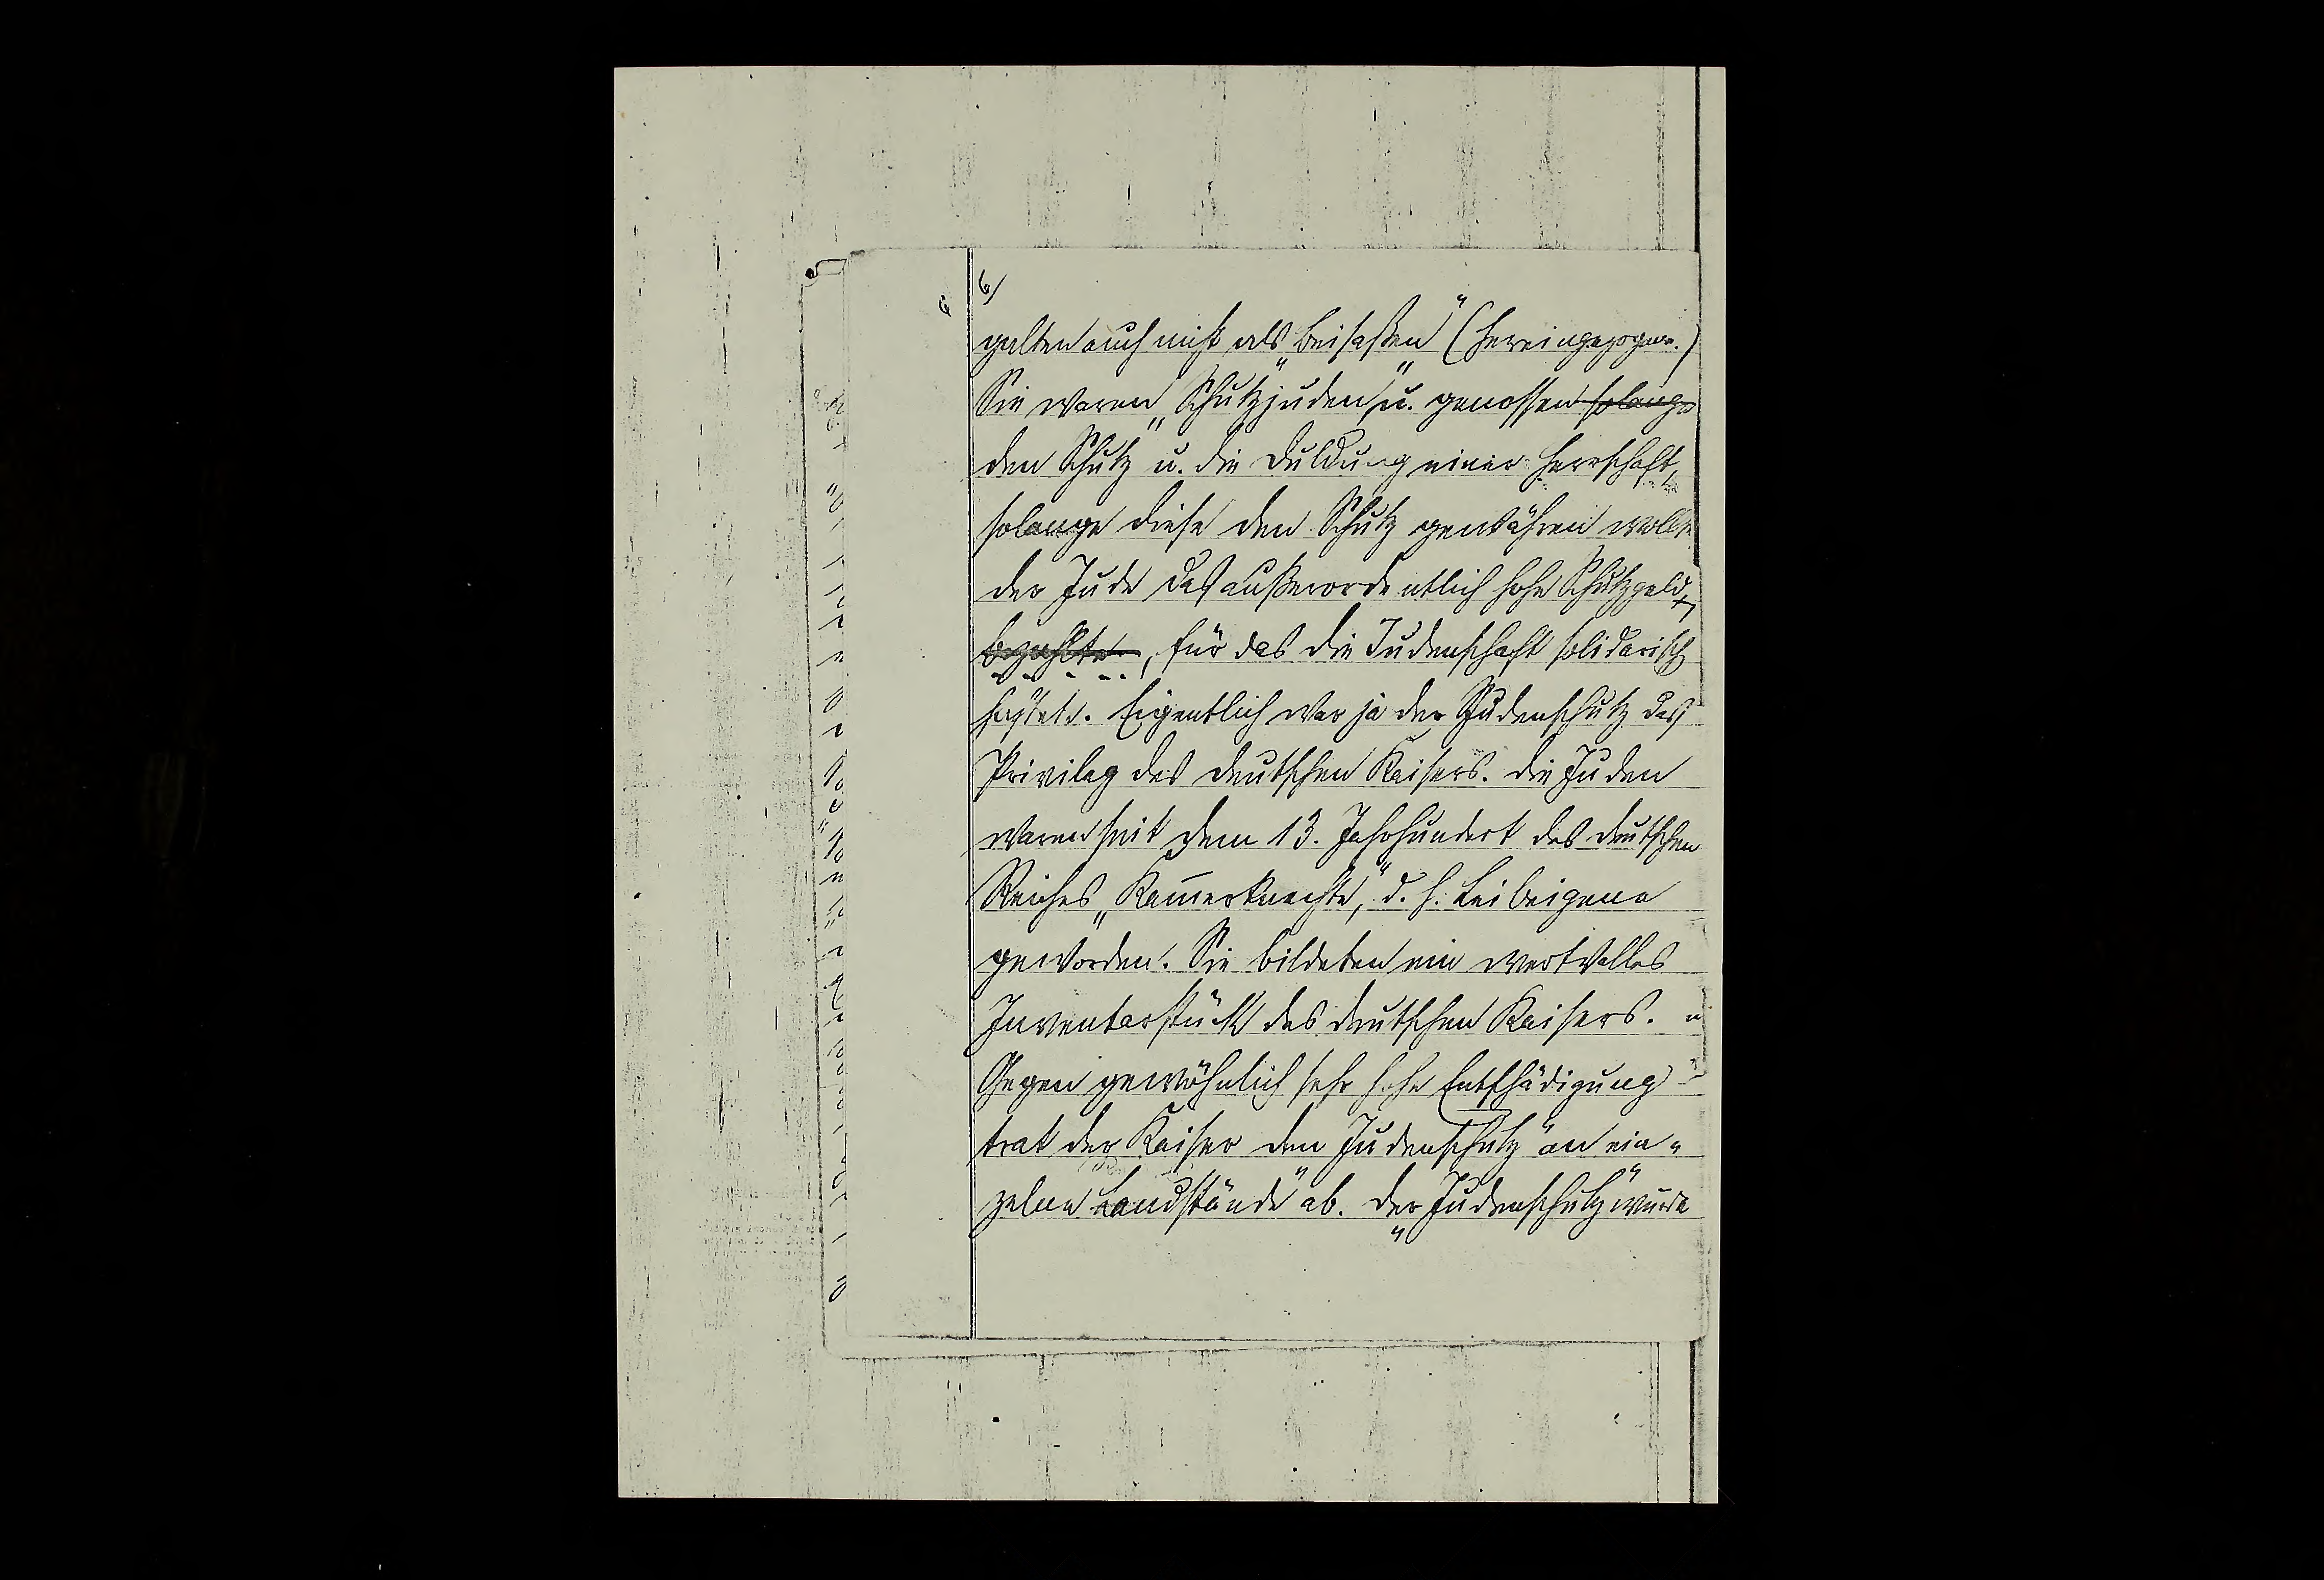 6)
galten auch nicht als „Beisaßen“ (Hereingezogene.)
Sie waren „Schutzjuden“ u. genossen solange
den Schutz u. die Duldung einer Herrschaft,
solange diese den Schutz gewähren wollte
der Jude das außerordentlich hohe Schutzgeld,
bezahlte, für das die Judenschaft solidarisch
haftete. Eigentlich war ja der Judenschutz das
Privileg des deutschen Kaisers. Die Juden
waren seit dem 13. Jahrhundert des deutschen
Reiches „Kam̅erknechte“, d. h. Leibeigene
geworden. Sie bildeten ein wertvolles
Inventarstück des deutschen Kaisers.
Gegen gewöhnlich sehr hohe Entschädigung
trat der Kaiser den Judenschutz an ein-
zelne „Landstände“ ab. Der „Judenschutz“ wurde